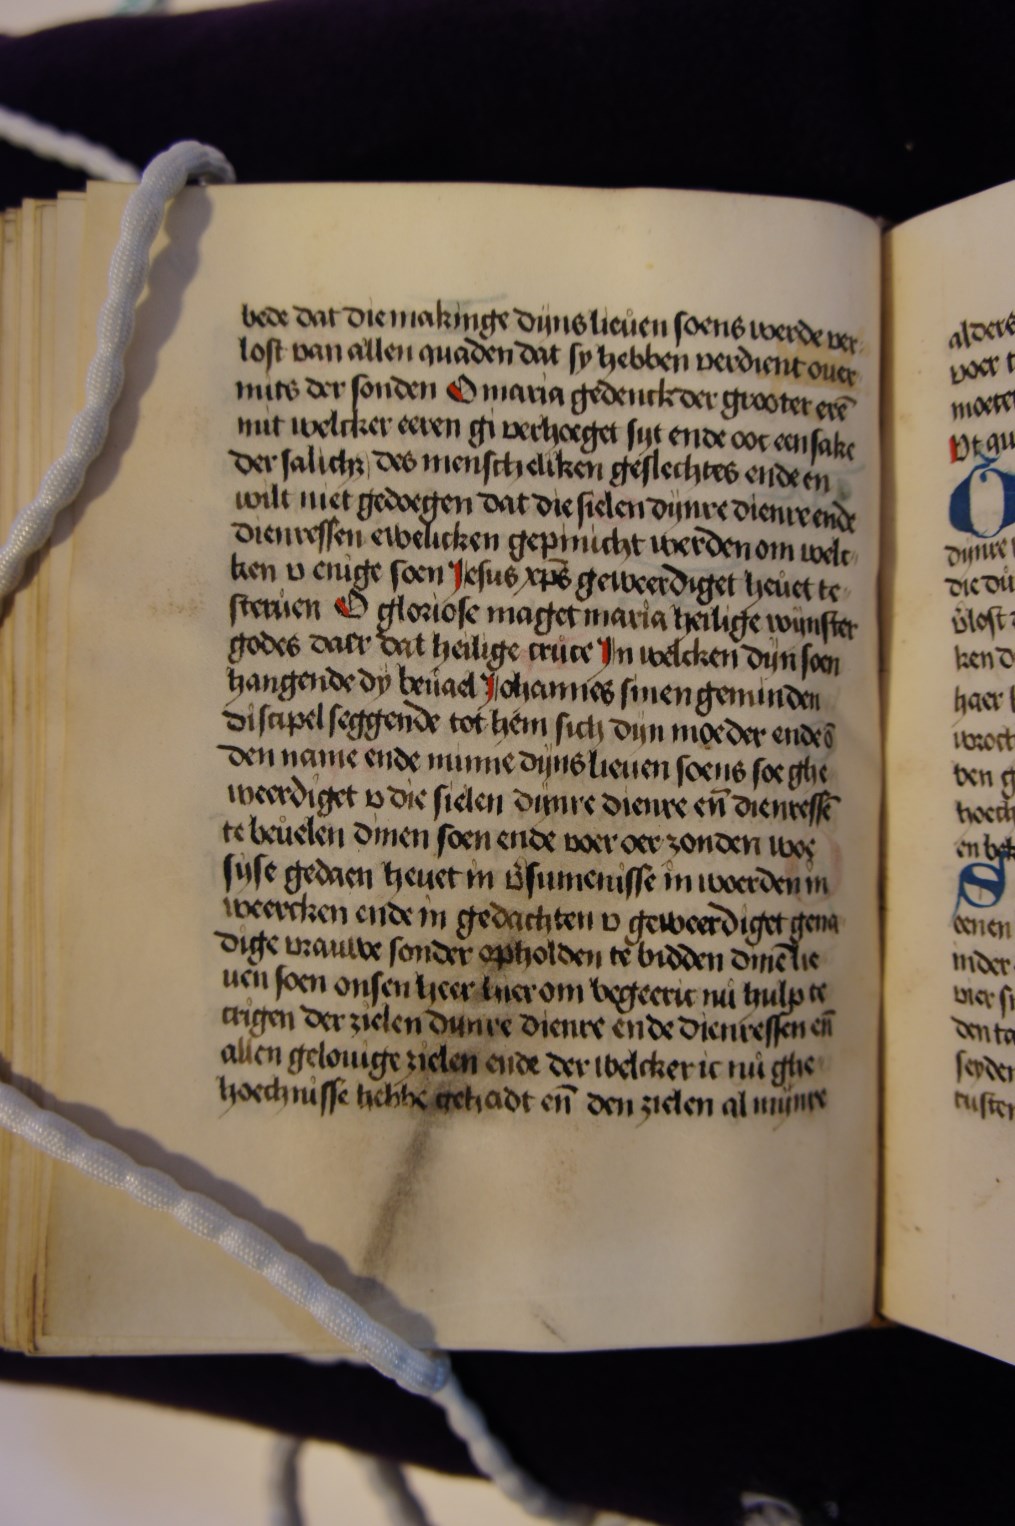 bede dat die makinge dijns lieuen soens werde ver
lost van allen quaden dat sy hebben verdient ouer
mits der sonden O maria gedenck der grooter erē
mit welcker eeren gi verhoeget sijt ende oec een sake
der salich des menscheliken geslechtes ende en
wilt niet gedoegen dat die sielen dijnre dienre ende
dienressen ewelicken gepinicht werden om welc
ken v enige soen Jesus xps geweerdiget heuet te
steruen O gloriose maget maria heilige
godes daer dat heilige cruce In welcken dijn soen
hangende dy beuael Johannes sinen geminden
discipel seggende tot hem sich dijn moeder ende ō
den name ende minne dijns lieuen soens soe ghe
weerdiget v die sielen dijnre dienre en̄ dienressē
te beuelen dinen soen ende voer oer zonden
syse gedaen heuet in v̄sumenisse in woerden in
weercken ende in gedachten v geweerdiget gena
dige vrauwe sonder opholden te bidden dinē lie
uen soen onsen heer hier om begeeric nu hulp te
crigen der zielen dijnre dienre ende dienressen en̄
allen gelouige zielen ende der welcker ic nu ghe
hoechnisse hebbe gehadt en̄ den zielen al mijnre
alders
voer
moete
die
ken d
haer
ben g
hoech
eenen
inder
vier
den
seyden